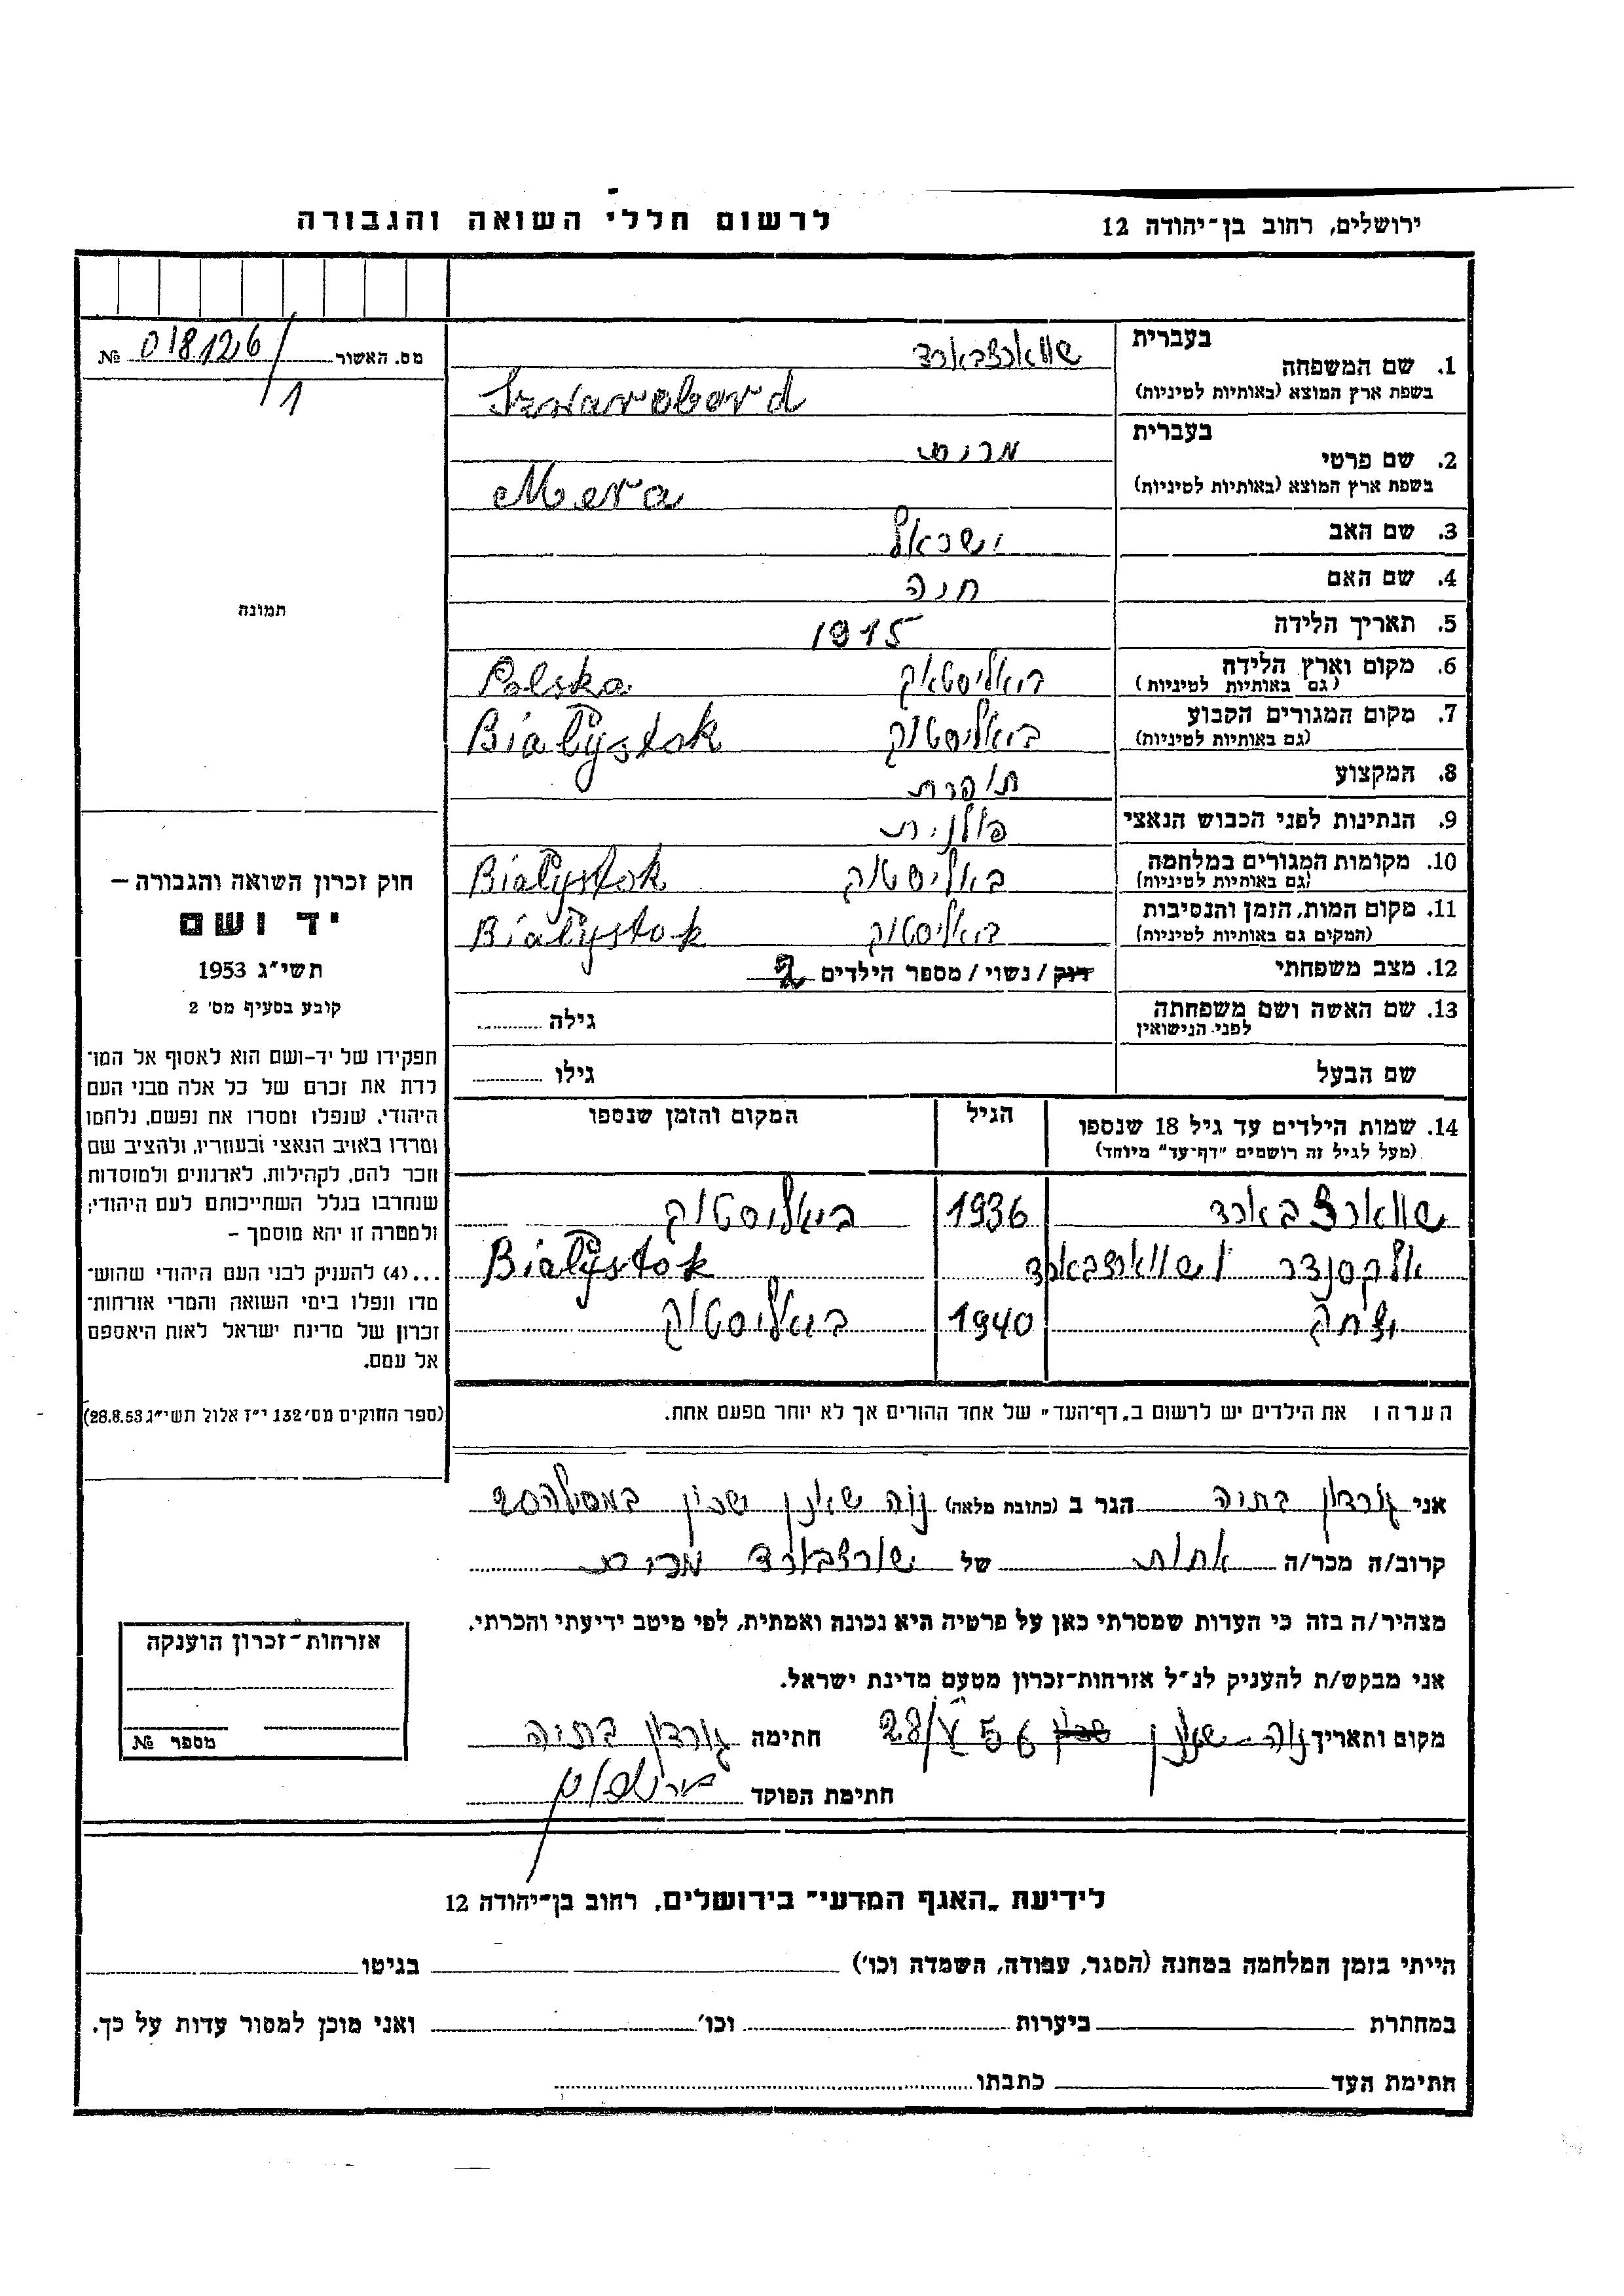 ירושלים, רחוב בן־יהודה 12
לרשום חללי השואה והגבורה
מס. האשור 018126/1 №
תמונה
חוק זכרון השואה והגבורה –
יד ושם
תשי״ג 1953
קובע בסעיף מס' 2
תפקידו של יד-ושם הוא לאסוף אל המו־
לדת את זכרם של כל אלה מבני העם
היהודי, שנפלו ומסרו את נפשם, נלחמו
ומרדו באויב הנאצי ובעוזריו, ולהציב שם
וזכר להם, לקהילות, לארגונים ולמוסדות
שנחרבו בגלל השתייכותם לעם היהודי;
ולמטרה זו יהא מוסמך –
...(4) להעניק לבני העם היהודי שהוש־
מדו ונפלו בימי השואה והמרי אזרחות־
זכרון של מדינת ישראל לאות היאספם
אל עמם.
(ספר החוקים מס' 132 י״ז אלול תשי״ג 28.8.53)
בעברית שווארצבארד
1. שם המשפחה
בשפת ארץ המוצא (באותיות לטיניות)
בעברית מרים
2. שם פרטי
בשפת ארץ המוצא (באותיות לטיניות) Mera
3. שם האב ישראל
4. שם האם חנה
5. תאריך הלידה 1915
6. מקום וארץ הלידה ביאליסטאק Polska
(גם באותיות לטיניות)
7. מקום המגורים הקבוע ביאליסטוק Białystok
(גם באותיות לטיניות)
8. המקצוע תופרת
9. הנתינות לפני הכבוש הנאצי פולנית
10. מקומות המגורים במלחמה ביאליסטוק Białystok
(גם באותיות לטיניות)
11. מקום המות, הזמן והנסיבות ביאליסטוק Białystok
(המקום גם באותיות לטיניות)
12. מצב משפחתי רווק / נשוי / מספר הילדים 2
13. שם האשה ושם משפחתה גילה
לפני הנישואין
שם הבעל גילו
14. שמות הילדים עד גיל 18 שנספו הגיל המקום והזמן שנספו
(מעל לגיל זה רושמים "דף־עד" מיוחד)
שווארצבארד 1936 ביאליסטוק
אלכסנדר ושווארצבארד Białystok
יצחק 1940 ביאליסטוק
הערה: את הילדים יש לרשום ב„דף־העד" של אחד ההורים אך לא יותר מפעם אחת.
אני גורדון בתיה הגר ב (כתובת מלאה) נוה שאנן שכון
קרוב/ה מכר/ה אחות של שורצבארד מרים
מצהיר/ה בזה כי העדות שמסרתי כאן על פרטיה היא נכונה ואמתית, לפי מיטב ידיעתי והכרתי.
אני מבקש/ת להעניק לנ״ל אזרחות־זכרון מטעם מדינת ישראל.
מקום ותאריך נוה-שאנן 28/X 56 חתימה גורדון בתיה
חתימת הפוקד
אזרחות־זכרון הוענקה
מספר №
לידיעת „האגף המדעי" בירושלים, רחוב בן־יהודה 12
הייתי בזמן המלחמה במחנה (הסגר, עבודה, השמדה וכו') בגיטו
במחתרת ביערות וכו' ואני מוכן למסור עדות על כך.
חתימת העד כתבתו